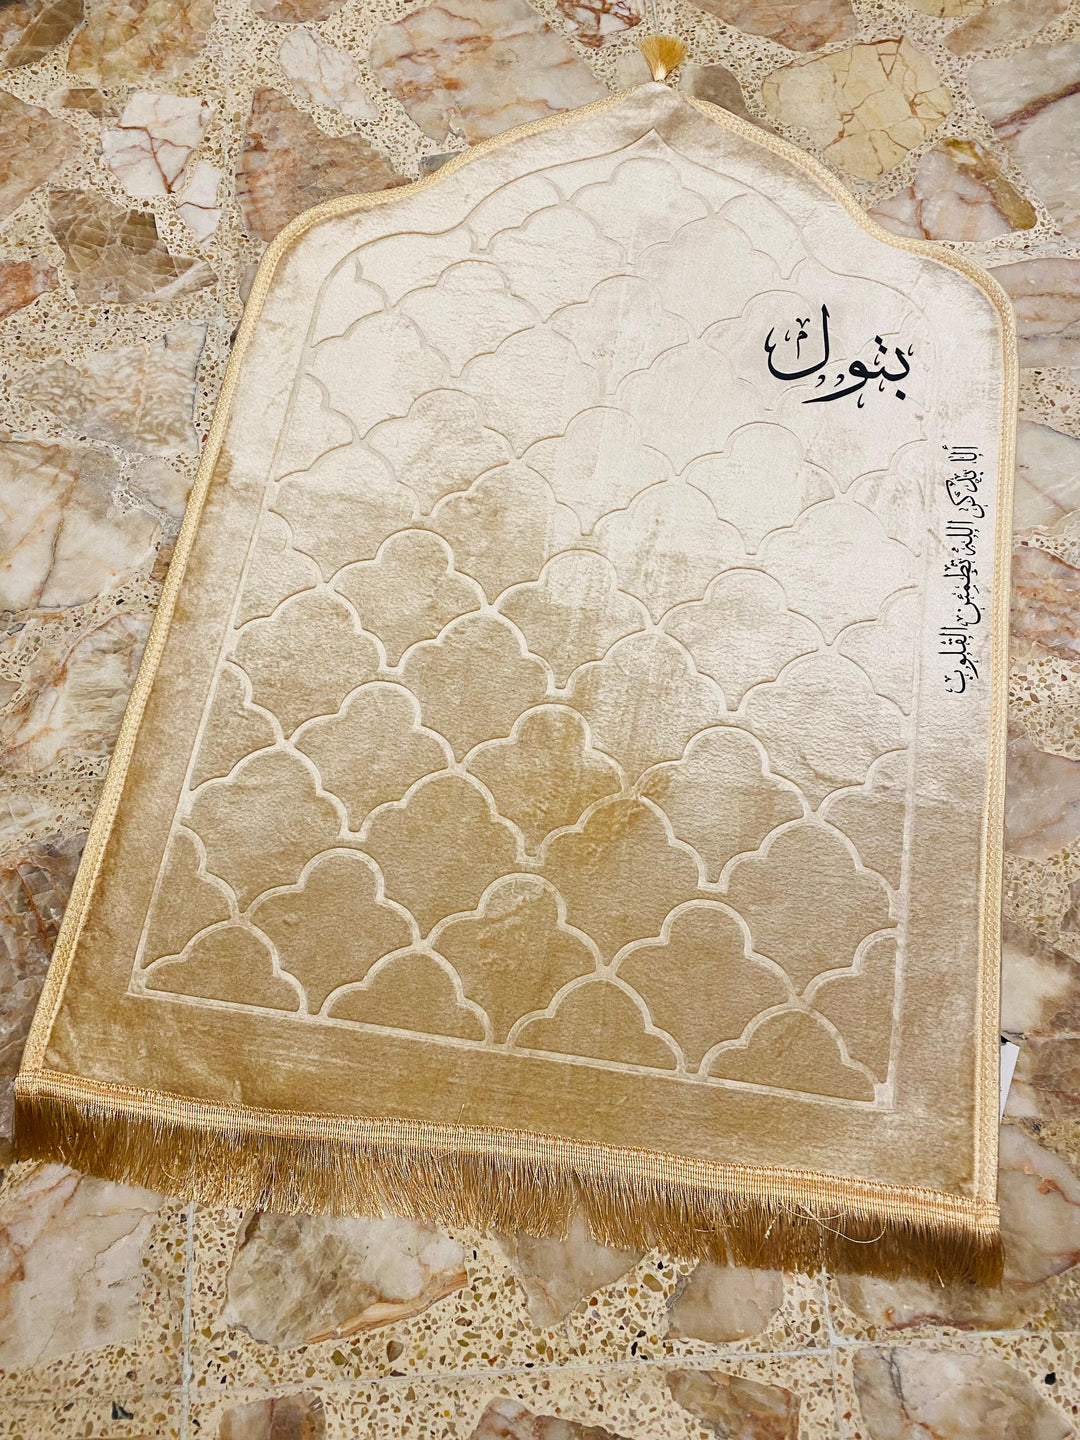 بتول
ألا بذكر الله تطمئن القلوب